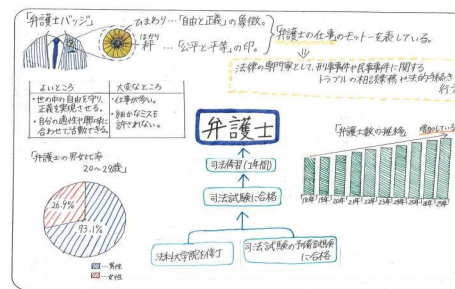 「弁護士バッジ」
ひまわり…「自由と正義」の象徴。
はかり
秤…「公平と平等」の印。
弁護士の仕事のモットーを表している。
法律の専門家として、刑事事件や民事事件に関する
トラブルの相談業務や法的手続き
行う
よいところ
大変なところ
・世の中の自由を守り、
正義を実現させる。
・自分の適性や興味に
合わせて活動できる。
・仕事が多い。
・細かなミスも
許されない。
弁護士
司法修習(1年間)
司法試験に合格
法科大学院を修了
司法試験の予備試験
に合格
「弁護士の男女比率
20~29歳」
26.9%
73.1%
…男性
…女性
「弁護士数の推移」
増加している